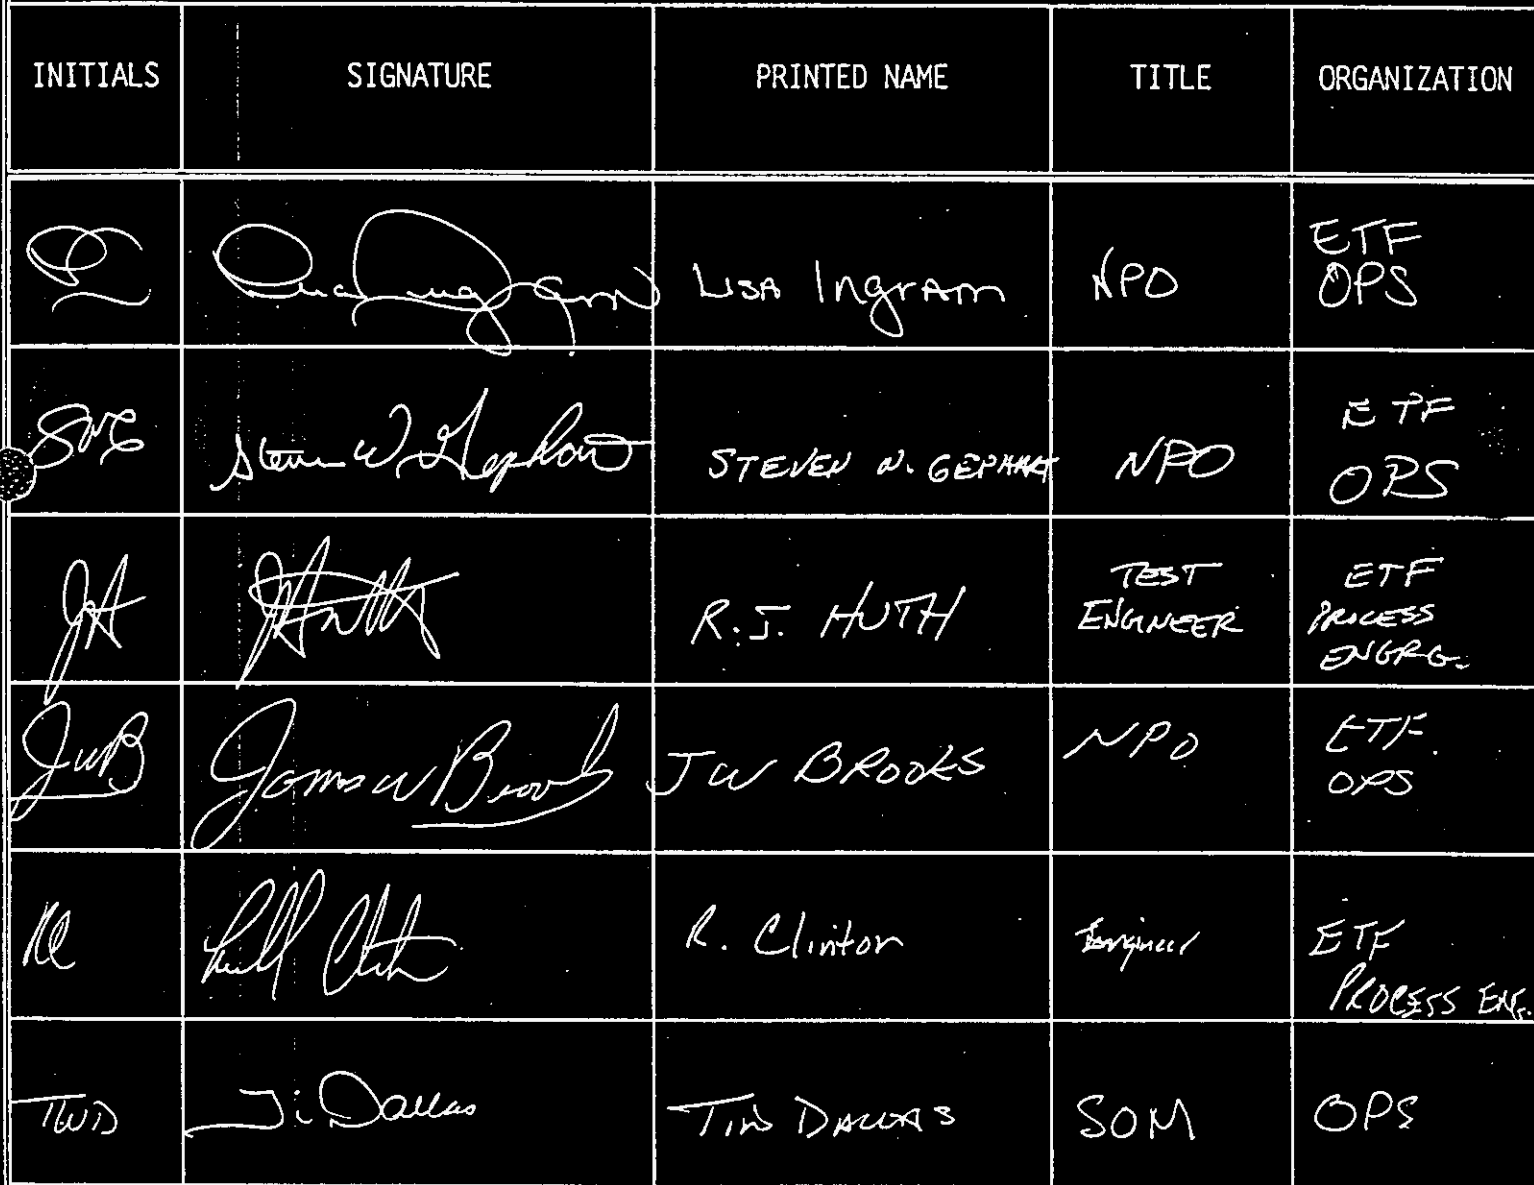 INITIALS SIGNATURE PRINTED NAME TITLE ORGANIZATION
LISA INGRAM NPO ETF
OPS
SWG Steven W Gephart STEVEN W. GEPHART NPO ETF
OPS
JH R.J. HUTH TEST
ENGINEER ETF
PROCESS
ENGRG.
JWB James W Brooks J W BROOKS NPO ETF.
OPS
RC R. Clinton Engineer ETF
PROCESS ENG.
TWD Ti Dallas TIM DALLAS SOM OPS